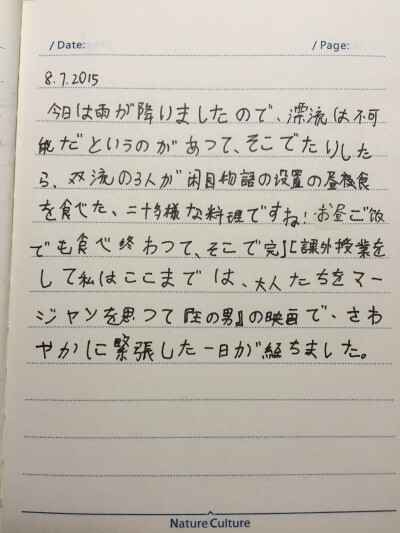 / Date:
/ Page:
8.7.2015
今日は雨が降りましたので、漂流は不可
能だというのがあつて、そこでたりした
ら、双流の3人が闲目物語の设置の昼後食
を食べた、二十多様な料理ですね!お昼ご饭
でも食べ終わつて、そこで完」「課外授業を
して私はここまでは、大人たちをマー
ジャンを思つて『の男』の映画で、さわ
やかに緊張した一日が経ちました。
Nature Culture